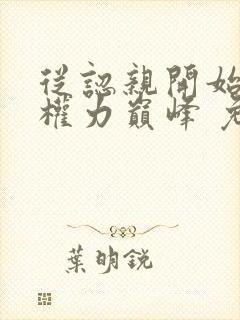 從認親開始
權力巔峰
葉明銳